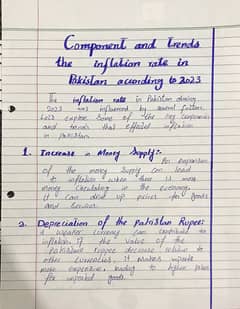 Component and Trends
the inflation rate in
Pakistan according to 2023
The inflation rate in Pakistan during
2023 was influenced by several factors.
Let's explore some of the key components
and trends that affected inflation
in pakistan
1. Increase in Money Supply:- An expansion
of the money supply can lead
to inflation when there is more
money circulating in the economy,
it can drive up prices for goods
and services.
2. Depreciation of the Pakistan Rupee:
A weaker currency can contribute to
inflation. If the value of the
Pakistani rupee decrease relative to
other currencies, it makes imports
more expensive, leading to higher prices
for imported goods.